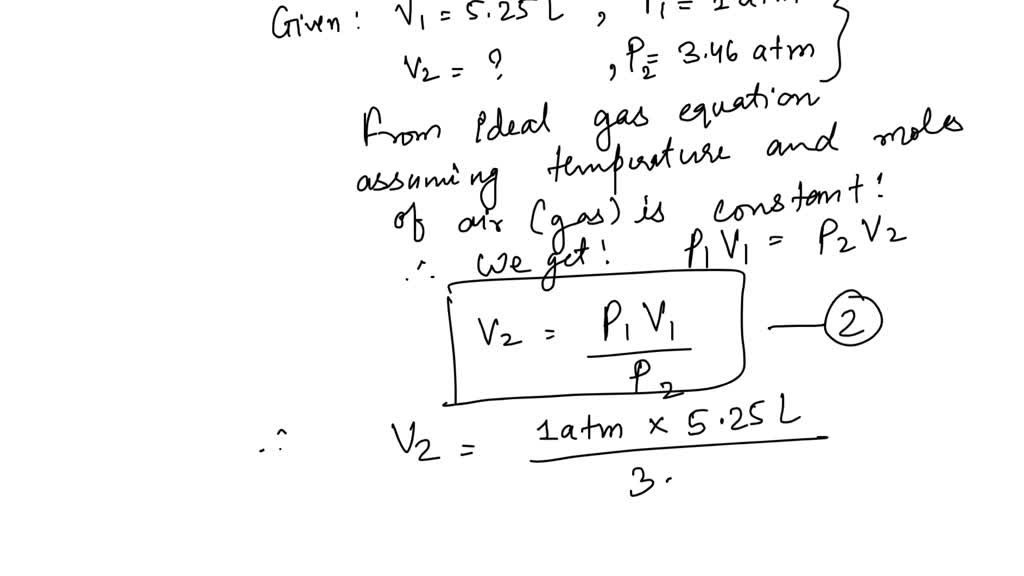 Given: V1 = 5.25 L , P1 = 1 atm
V2 = ? , P2 = 3.46 atm
From Ideal gas equation
assuming temperature and moles
of air (gas) is constant!
∴ We get! P1 V1 = P2 V2
V2 = P1 V1 / P2 — 2
∴ V2 = 1 atm × 5.25 L / 3.